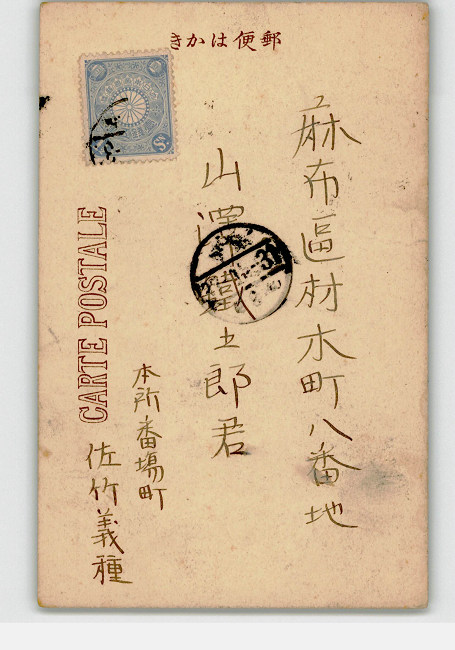 郵便はかき
麻布區材木町八番地
山澤鐵五郎君
本所番場町
佐竹義種
CARTE POSTALE